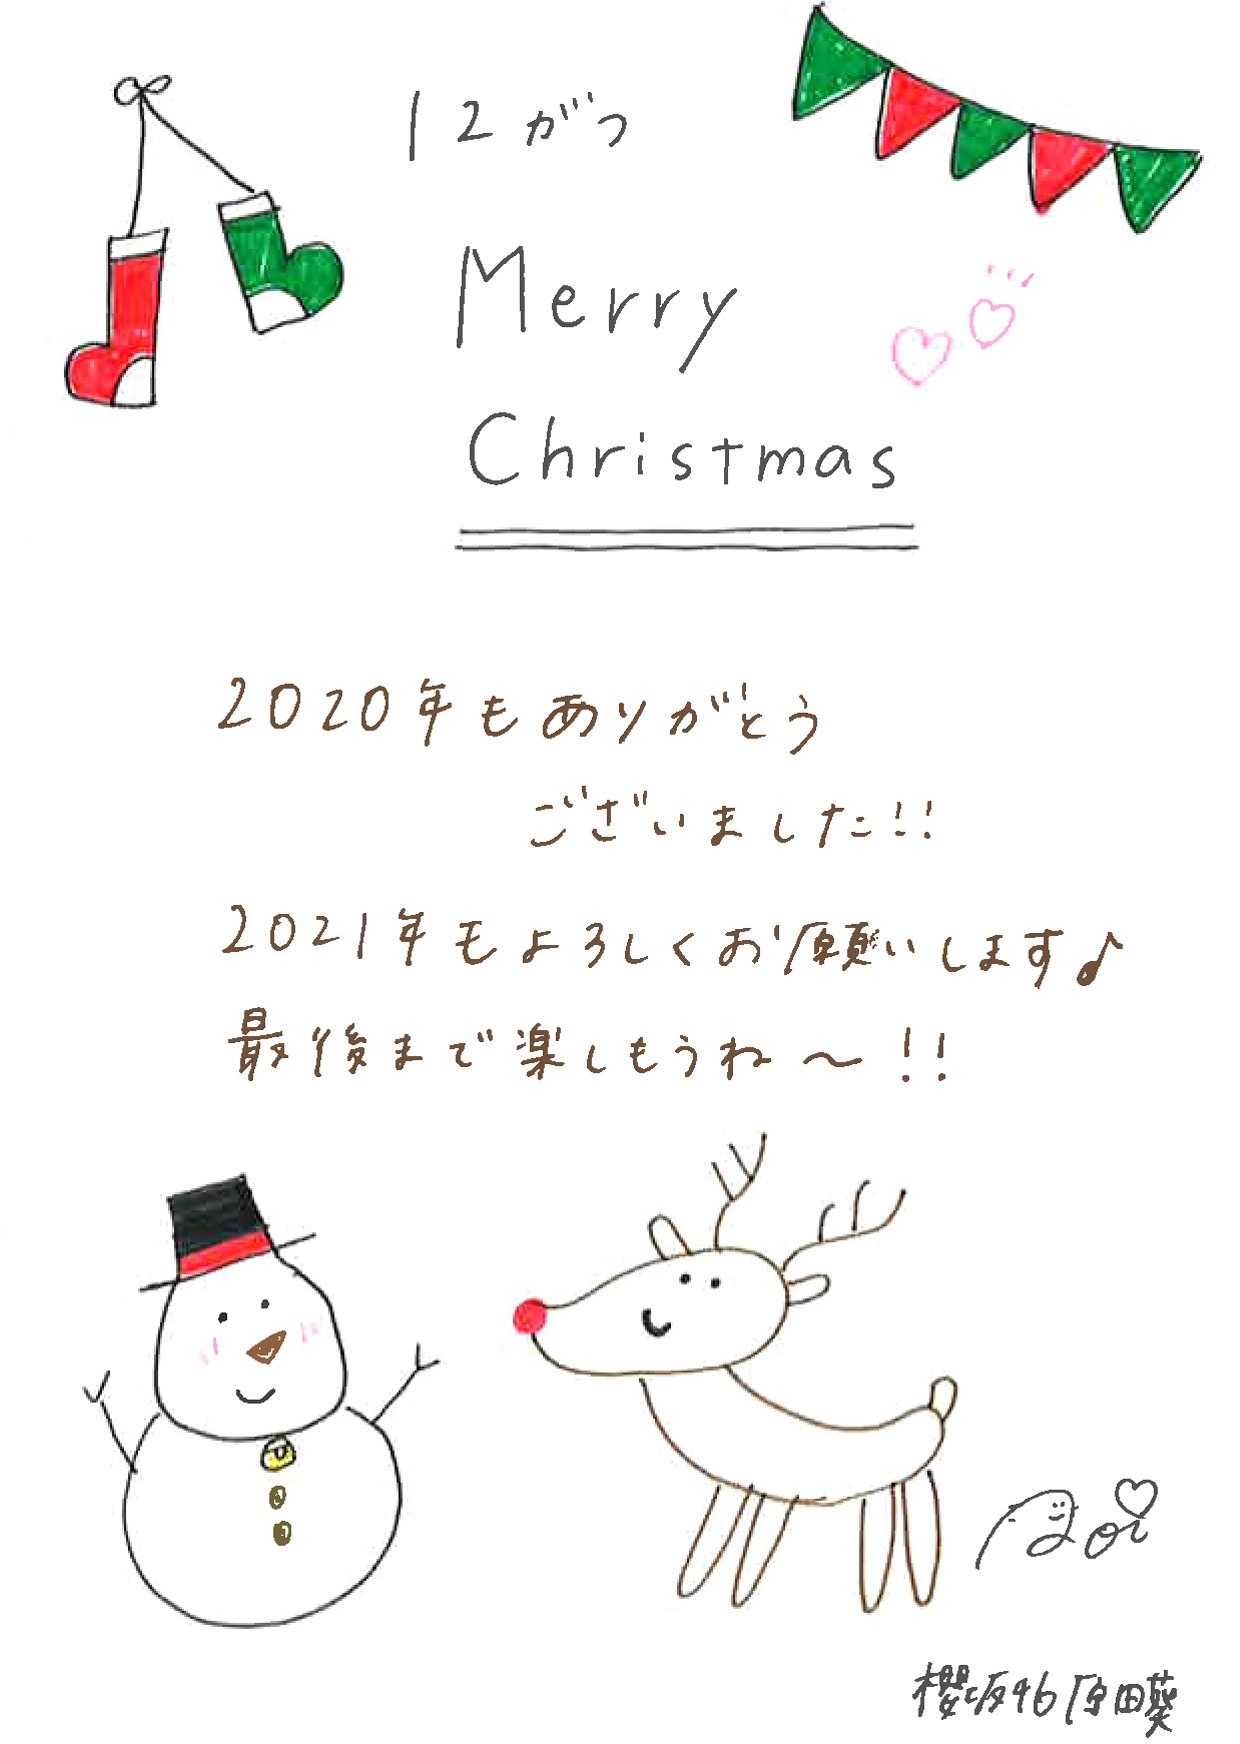 12がつ
Merry
Christmas
2020年もありがとう
ございました!!
2021年もよろしくお願いします♪
最後まで楽しもうね〜!!
Aoi
櫻坂46原田葵